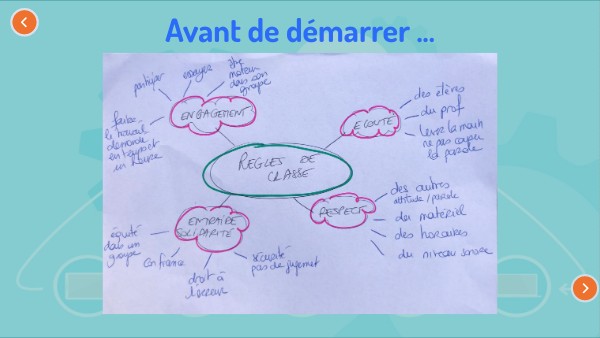 Avant de démarrer ...
participer
essayer
être
moteur
dans son
groupe
faire
le travail
demandé
en temps et
en heure
ENGAGEMENT
ECOUTE
des élèves
du prof
lever la main
ne pas couper
la parole
REGLES DE
CLASSE
ENTRAIDE
SOLIDARITÉ
équité
dans un
groupe
confiance
droit à
l'erreur
sécurité
pas de jugement
RESPECT
des autres
attitude / parole
du matériel
des horaires
du niveau sonore